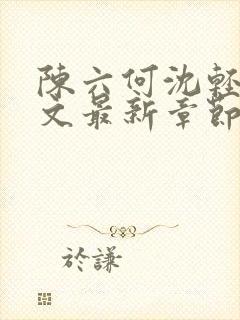 陳六何沈輕
文最新章節
於謙